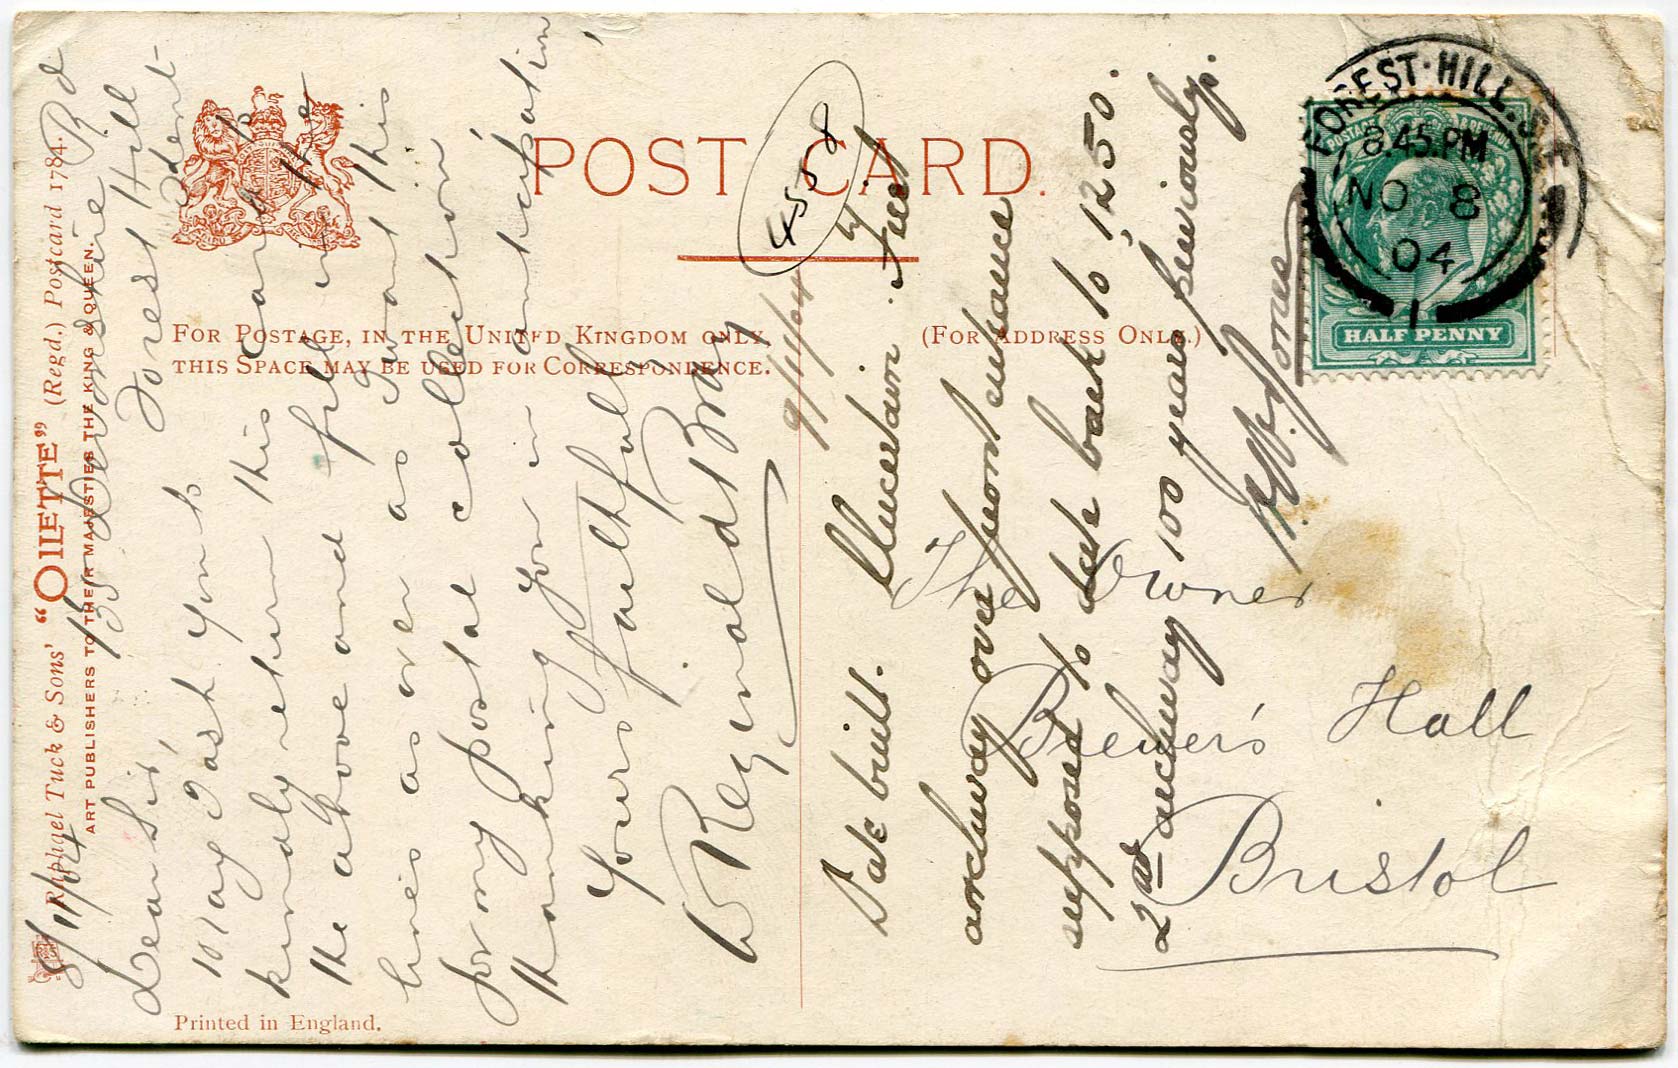 POST CARD.
FOR POSTAGE, IN THE UNITED KINGDOM ONLY,
THIS SPACE MAY BE USED FOR CORRESPONDENCE.
(FOR ADDRESS ONLY.)
Raphael Tuck & Sons' "OILETTE" (Regd.) Postcard 1784.
ART PUBLISHERS TO THEIR MAJESTIES THE KING & QUEEN.
Printed in England.
FOREST·HILL. S.E
8.45.PM
NO 8
04
1
HALF PENNY
4558
9/11/04
8/11/04 135 Devonshire Rd
Forest Hill
Dear Sir,
may I ask you to
kindly return this card
the above and fill in the
lines as over as I want this
for my postal collection
thanking you in anticipation
Yours faithfully
W Reginald Bray
Date built. Uncertain. First
archway over front entrance
supposed to date back to 1250.
2nd archway 100 years previously.
Jones
The Owner
Brewer's Hall
Bristol